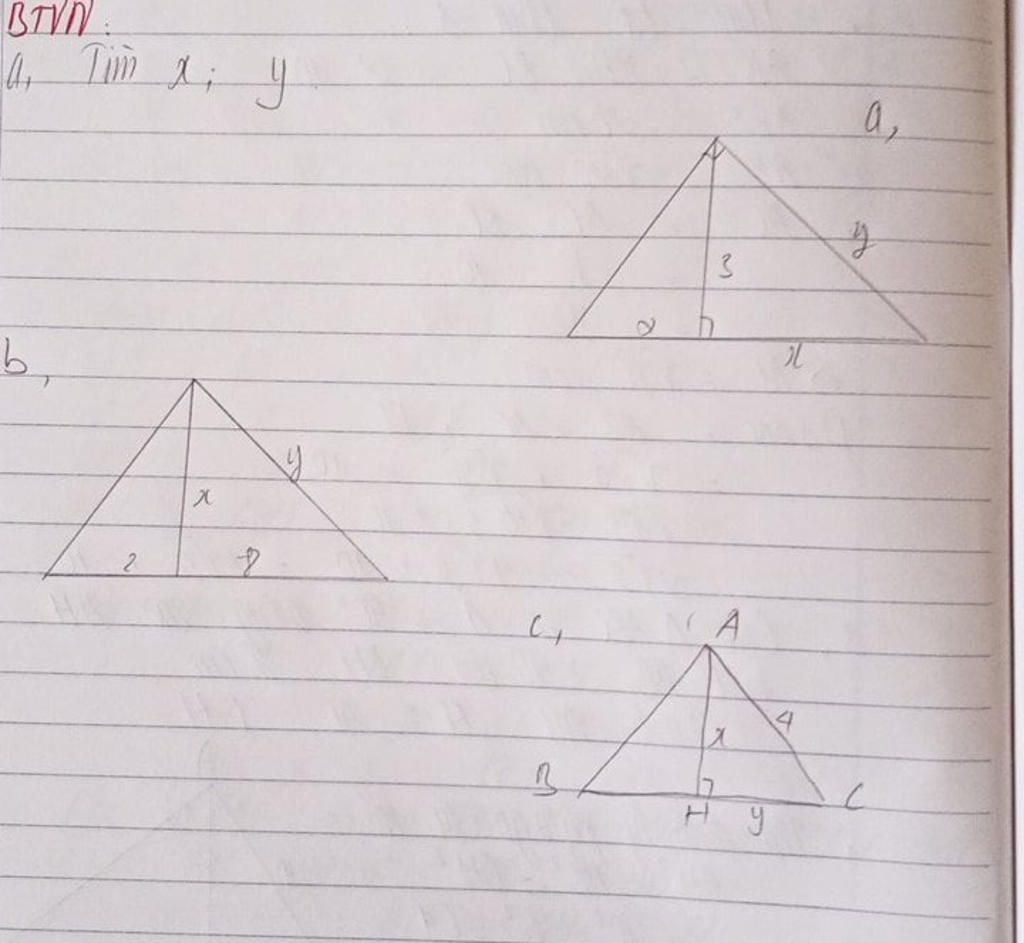 BTVN:
a, Tìm x; y
a,
y
3
2
x
b,
y
x
2
8
c, A
4
x
B
C
H
y